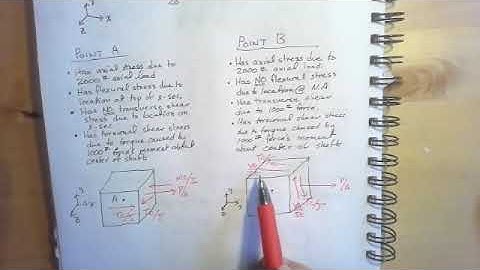 POINT A
• Has axial stress due to
2000 # axial load
• Has flexural stress due to
location at top of x-sec.
• Has NO transverse shear
stress due to location on
x-sec
• Has torsional shear stress
due to torque caused by
1000 # force's moment about
center of shaft
A
P/A
POINT B
• Has axial stress due to
2000 # axial load
• Has NO flexural stress
due to location @ N.A.
• Has transverse shear
due to 1000 #
force
• Has torsional shear stress
due to torque caused by
1000 # force's moment
about center of shaft
P/A